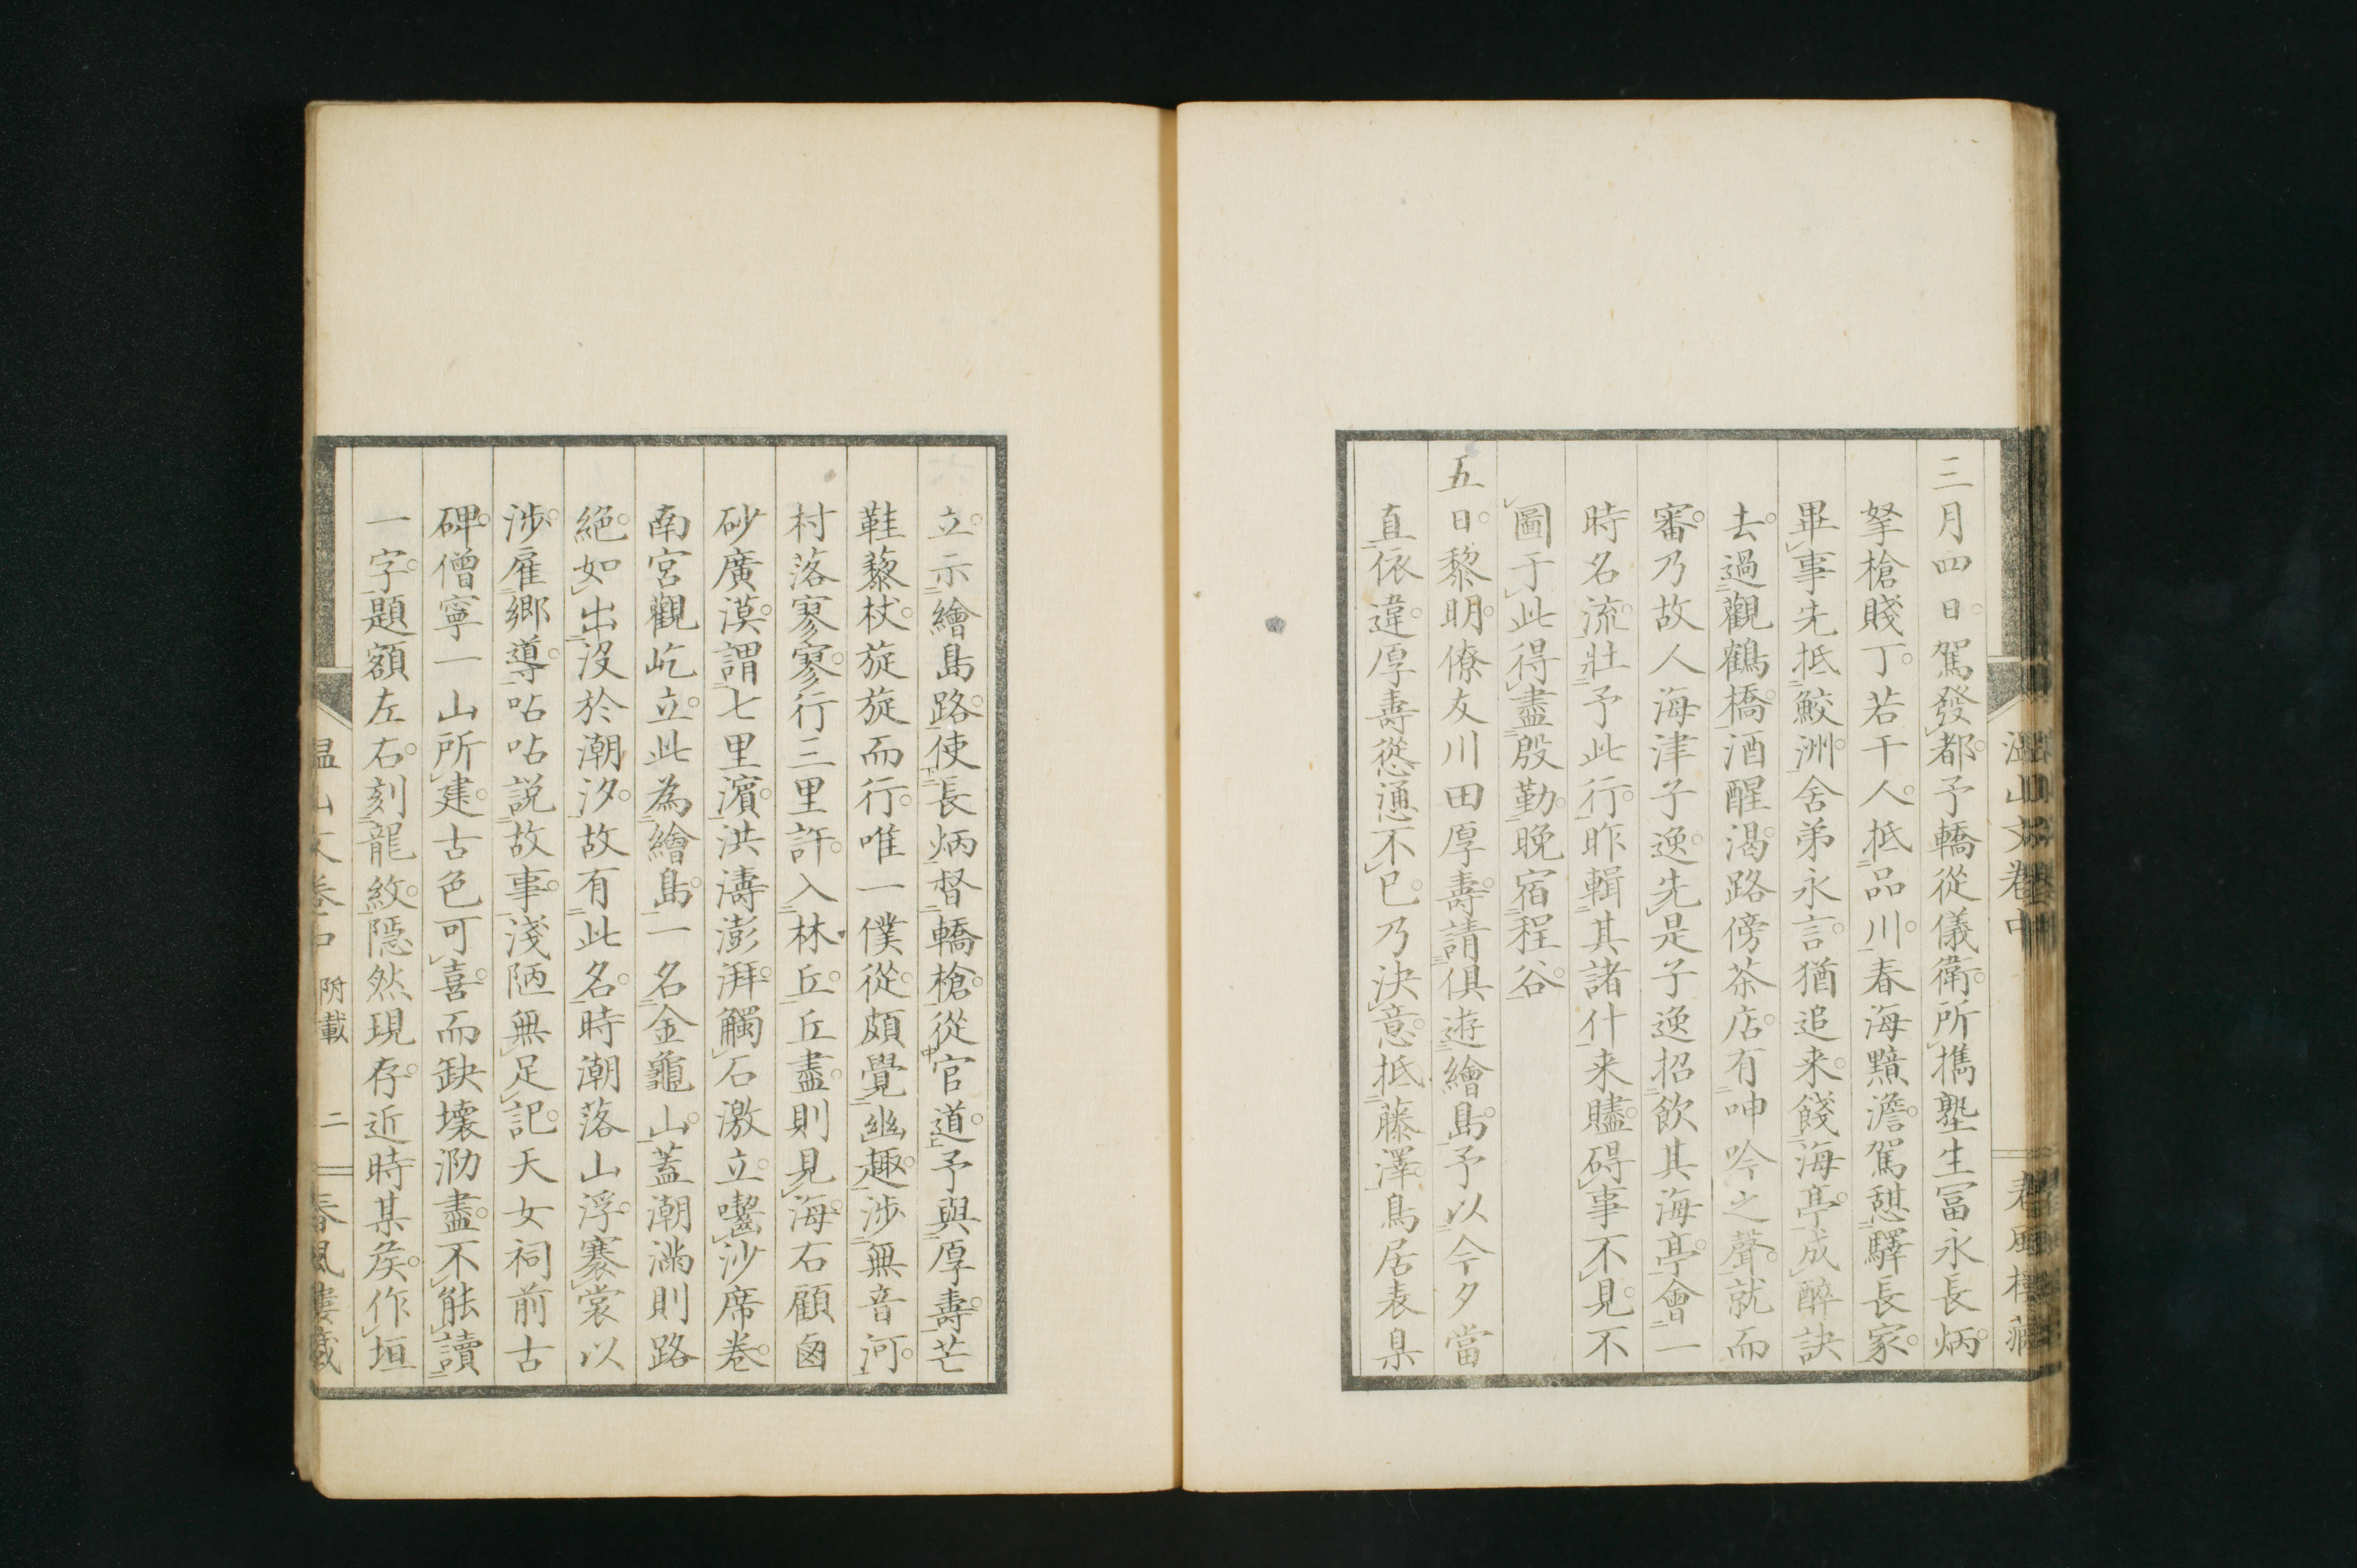 三月四日駕發都予轎從儀衛所携塾生冨永長炳
拏槍賤丁若干人抵品川春海黯澹駕憇驛長家
畢事先抵鮫洲舍弟永言猶追来餞海亭成醉訣
去過觀鶴橋酒醒渴路傍茶店有呻吟之聲就而
審乃故人海津子逸先是子逸招飲其海亭會一
時名流壯予此行昨輯其諸什来贐碍事不見不
圖于此得盡殷勤晩宿程谷
五日黎明僚友川田厚壽請俱遊繪島予以今夕當
直依違厚壽慫慂不已乃決意抵藤澤鳥居表臬
立示繪島路使長炳督轎槍從官道予與厚壽芒
鞋藜杖旋旋而行唯一僕從頗覺幽趣涉無音河
村落寥寥行三里許入林丘丘盡則見海右顧鹵
砂廣漠謂七里濱洪濤澎湃觸石激立囓沙席卷
南宮觀屹立此為繪島一名金龜山蓋潮滿則路
絕如出没於潮汐故有此名時潮落山浮褰裳以
涉雇鄉導呫呫説故事淺陋無足記天女祠前古
碑僧寧一山所建古色可喜而缺壞泐盡不能讀
一字題額左右刻龍紋隱然現存近時某矦作垣
温山文卷中 附載 二 春風樓藏